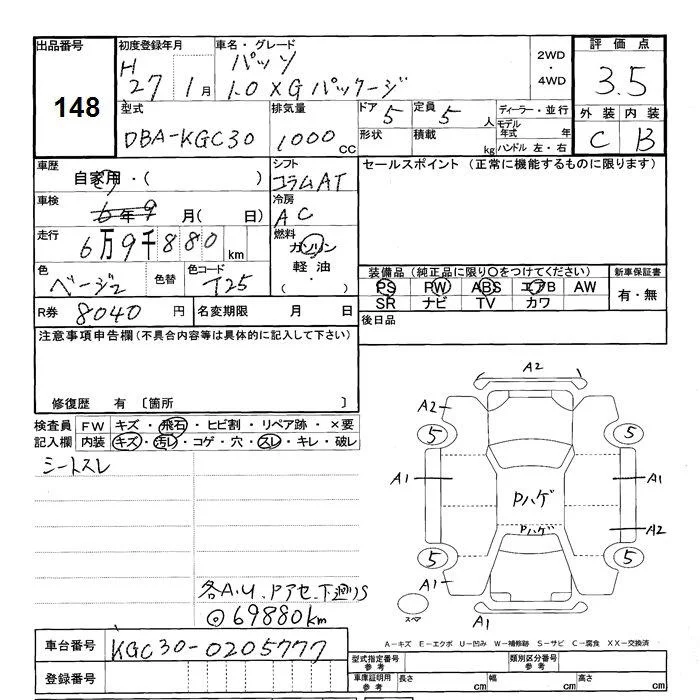 出品番号
148
初度登録年月
H 27年 1月
車名・グレード
パッソ
1.0 X Gパッケージ
2WD
・
4WD
評価点
3.5
型式
DBA-KGC30
排気量
1000 cc
ドア 5
形状
定員 5人
積載 kg
ディーラー・並行
モデル年式 年
ハンドル 左・右
外装 内装
C B
車歴
自家用・( )
シフト
コラムAT
セールスポイント (正常に機能するものに限ります)
車検
6年9月( 日)
冷房
AC
走行
6万9千880km
燃料
ガソリン
軽油
( ・ )
色
ベージュ2
色替
色コード
T25
装備品(純正品に限り○をつけてください)
PS PW ABS エアB AW
SR ナビ TV カワ
新車保証書
有・無
R券 8040円
名変期限 月 日
後日品
注意事項申告欄(不具合内容等は具体的に記入して下さい)
修復歴 有 〔箇所
検査員記入欄
FW キズ・飛石・ヒビ割・リペア跡・×要
内装 キズ・汚レ・コゲ・穴・スレ・キレ・破レ
シートスレ
各A.U.Pアセ.下廻りS
◎69880km
A2
A2
5 5
A1 A1
Pハゲ
Pハゲ
A2
5 5
A1
スペア
A1
A-キズ E-エクボ U-凹み W-補修跡 S-サビ C-腐食 XX-交換済
車台番号 KGC30-0205777
登録番号
型式指定番号 参考
類別区分番号 参考
車庫証明用 参考
長さ cm
幅 cm
高さ cm